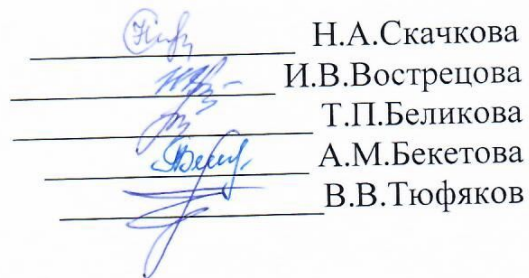 Н.А.Скачкова
И.В.Вострецова
Т.П.Беликова
А.М.Бекетова
В.В.Тюфяков